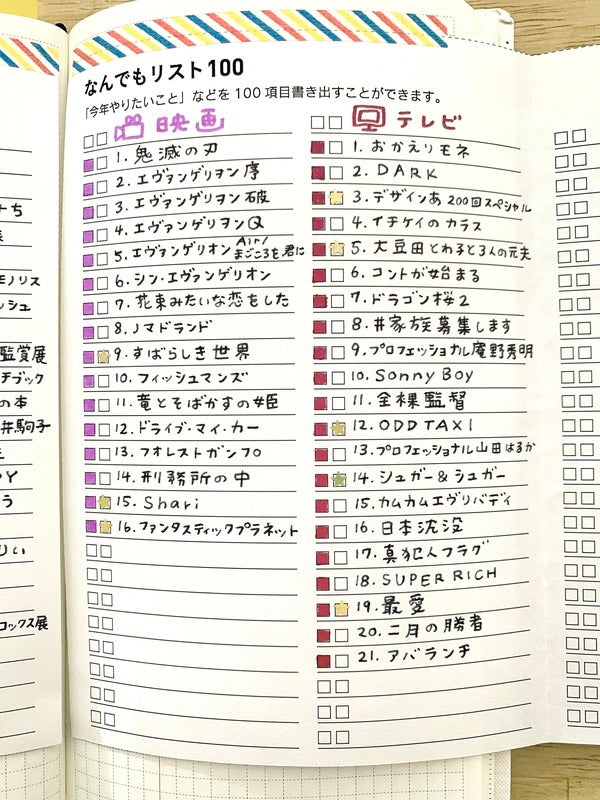 なんでもリスト100
「今年やりたいこと」などを100項目書き出すことができます。
映画
1. 鬼滅の刃
2. エヴァンゲリヲン序
3. エヴァンゲリヲン破
4. エヴァンゲリヲンQ
5. エヴァンゲリオン Air/まごころを君に
6. シン・エヴァンゲリオン
7. 花束みたいな恋をした
8. ノマドランド
9. すばらしき世界
10. フィッシュマンズ
11. 竜とそばかすの姫
12. ドライブ・マイ・カー
13. フォレストガンプ
14. 刑務所の中
15. Shari
16. ファンタスティックプラネット
テレビ
1. おかえりモネ
2. DARK
3. デザインあ 200回スペシャル
4. イチケイのカラス
5. 大豆田とわ子と3人の元夫
6. コントが始まる
7. ドラゴン桜2
8. #家族募集します
9. プロフェッショナル庵野秀明
10. Sonny Boy
11. 全裸監督
12. ODD TAXI
13. プロフェッショナル山田はるか
14. シュガー&シュガー
15. カムカムエヴリバディ
16. 日本沈没
17. 真犯人フラグ
18. SUPER RICH
19. 最愛
20. 二月の勝者
21. アバランチ
モノリス
監賞展
の本
井駒子
ロックス展